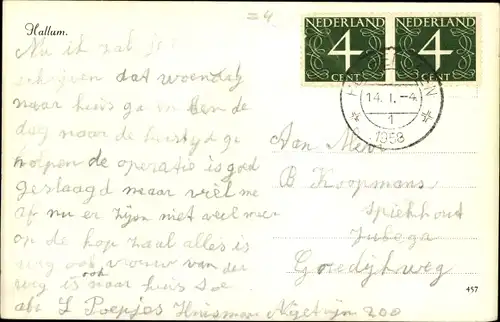 = 4
Hallum.
NEDERLAND NEDERLAND
4 4
CENT CENT
14. 1. -4
1
1958
Nu ik zal je
schrijven dat woensdag
naar huis ga en ben de
dag naar de
holpen de operatie is goed
geslaagd maar viel me
af nu er zijn niet veel meer
op de kop zaal alles is
weg ook vrouw van der
weg is ook naar huis toe
Huisman
Aan Mevr
B Koopmans
Spiekhout
Jubbega
Gorredijkweg
457